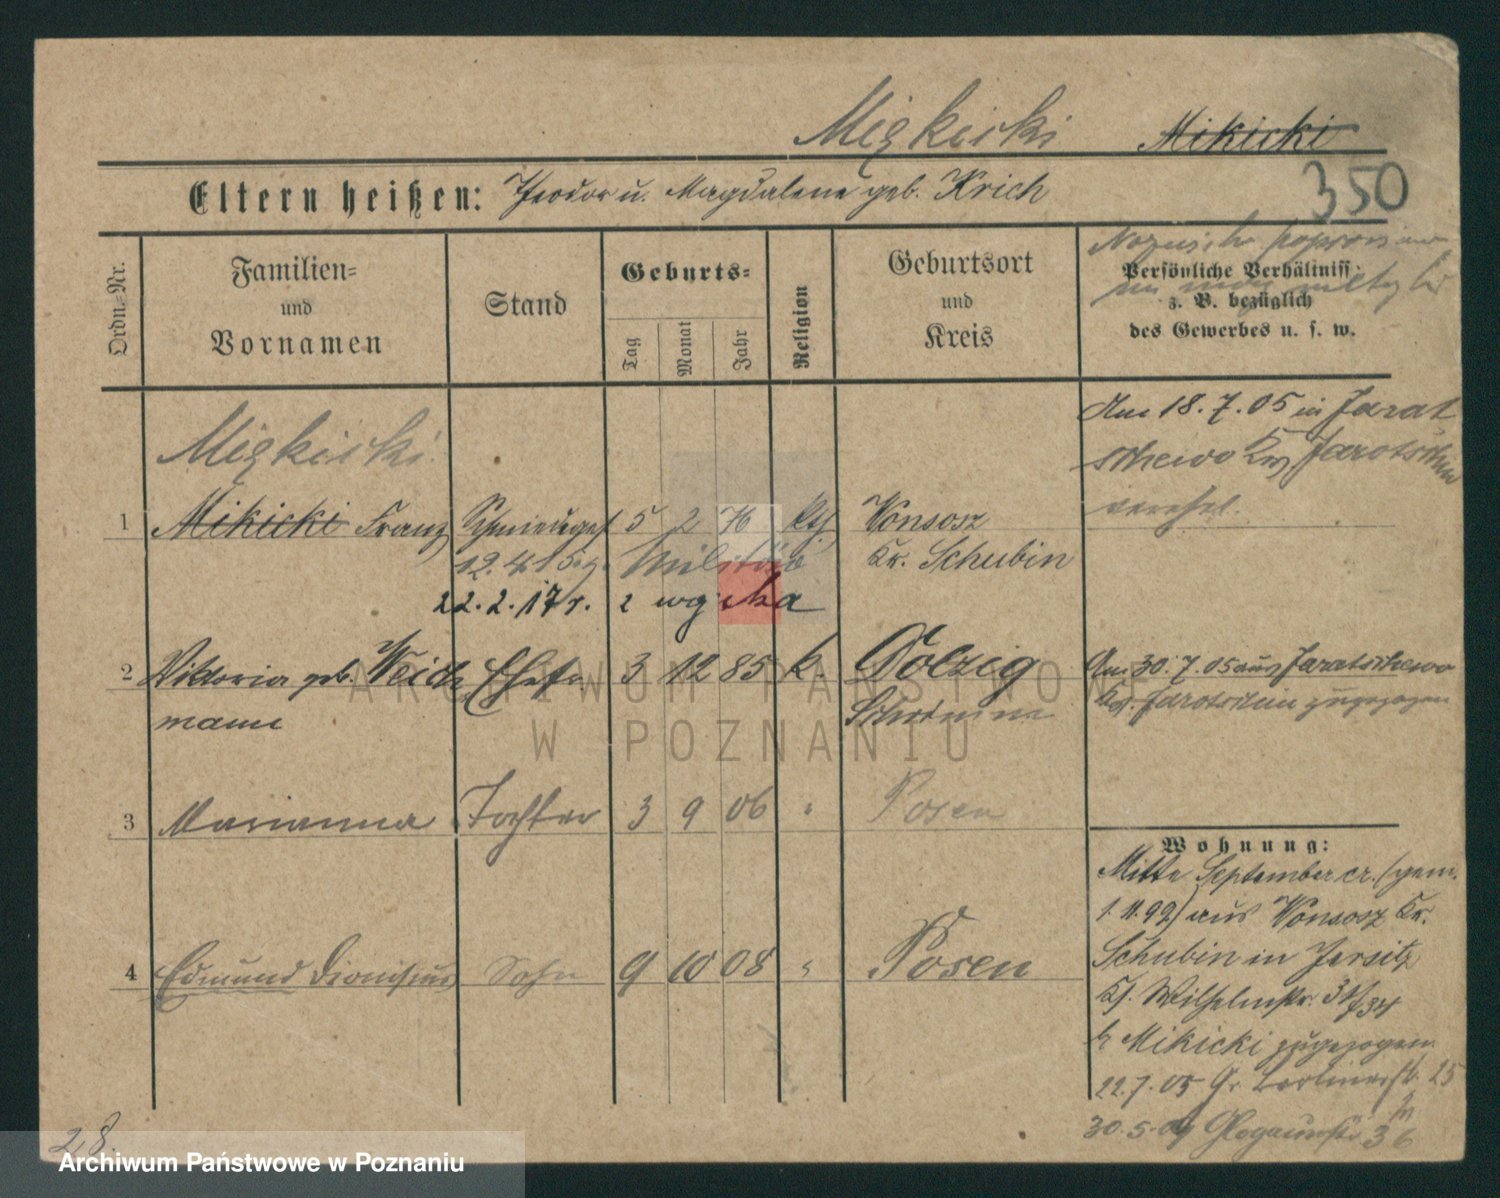 Miękicki Mikicki
Eltern heißen: Theodor u. Magdalena geb. Krich
350
Ordn.-Nr.
Familien-
und
Vornamen
Stand
Geburts-
Tag
Monat
Jahr
Religion
Geburtsort
und
Kreis
Nazwisko
Persönliche Verhältniss
z. B. bezüglich
des Gewerbes u. s. w.
Am 18.7.05 in Jarat
schewo Krs Jarotschin
verehel.
Mizkicki
1 Mikicki Franz Schmiedges. 5 2 76 kth. Wonsosz
Kr. Schubin
12.4.15 z. Militär
22.2.17 r. z
2 Viktoria geb. Weich Ehefr. 3 12 85 k. Dolzig
mann Schrimm
Am 30.7.05 aus Jaratschewo
Krs. Jarotschin zugezogen
3 Marianna Tochter 3 9 06 " Posen
4 Edmund Dionisius Sohn 9 10 08 " Posen
Wohnung:
Mitte September cr. (gem.
1.11.92) aus Wonsosz Kr.
Schubin in Jersitz
Wilhelmstr.
b Mikicki zugezogen
22.7.05 Gr. Berlinerstr. 25
30.5.09 Glogauerstr. 36
28.
ARCHIWUM PAŃSTWOWE
W POZNANIU
Archiwum Państwowe w Poznaniu